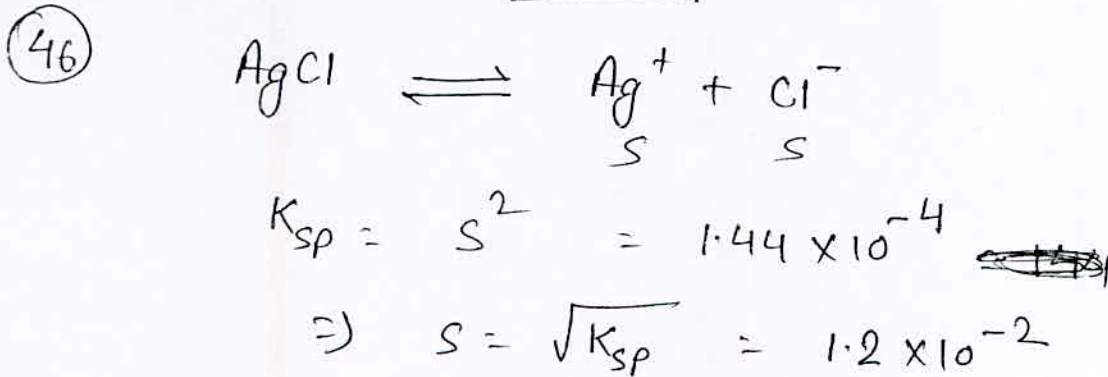 46
AgCl ⇌ Ag⁺ + Cl⁻
S S
Ksp = S² = 1.44 × 10⁻⁴
=) S = √Ksp = 1.2 × 10⁻²